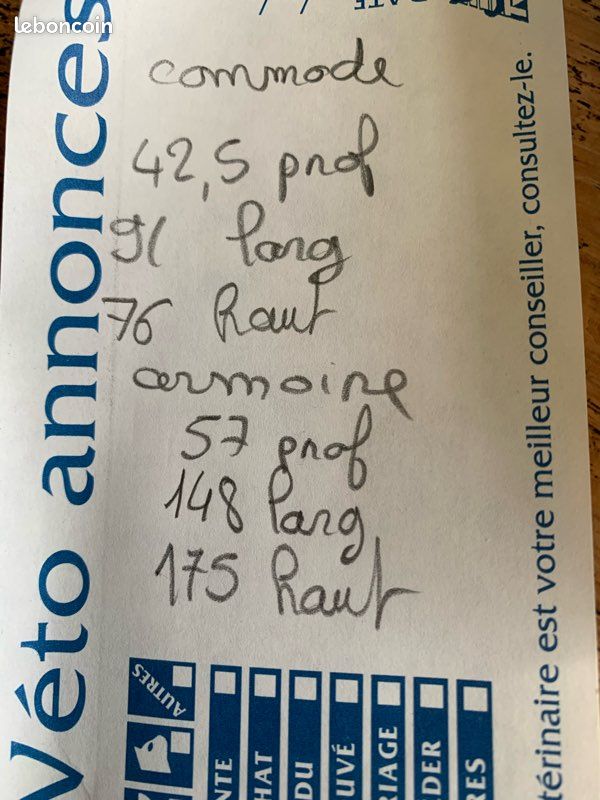 leboncoin
commode
42,5 prof
91 larg
76 haut
armoire
57 prof
148 larg
175 haut
Véto annonces
térinaire est votre meilleur conseiller, consultez-le.
AUTRES
NTE
HAT
DU
UVÉ
RIAGE
DER
RES